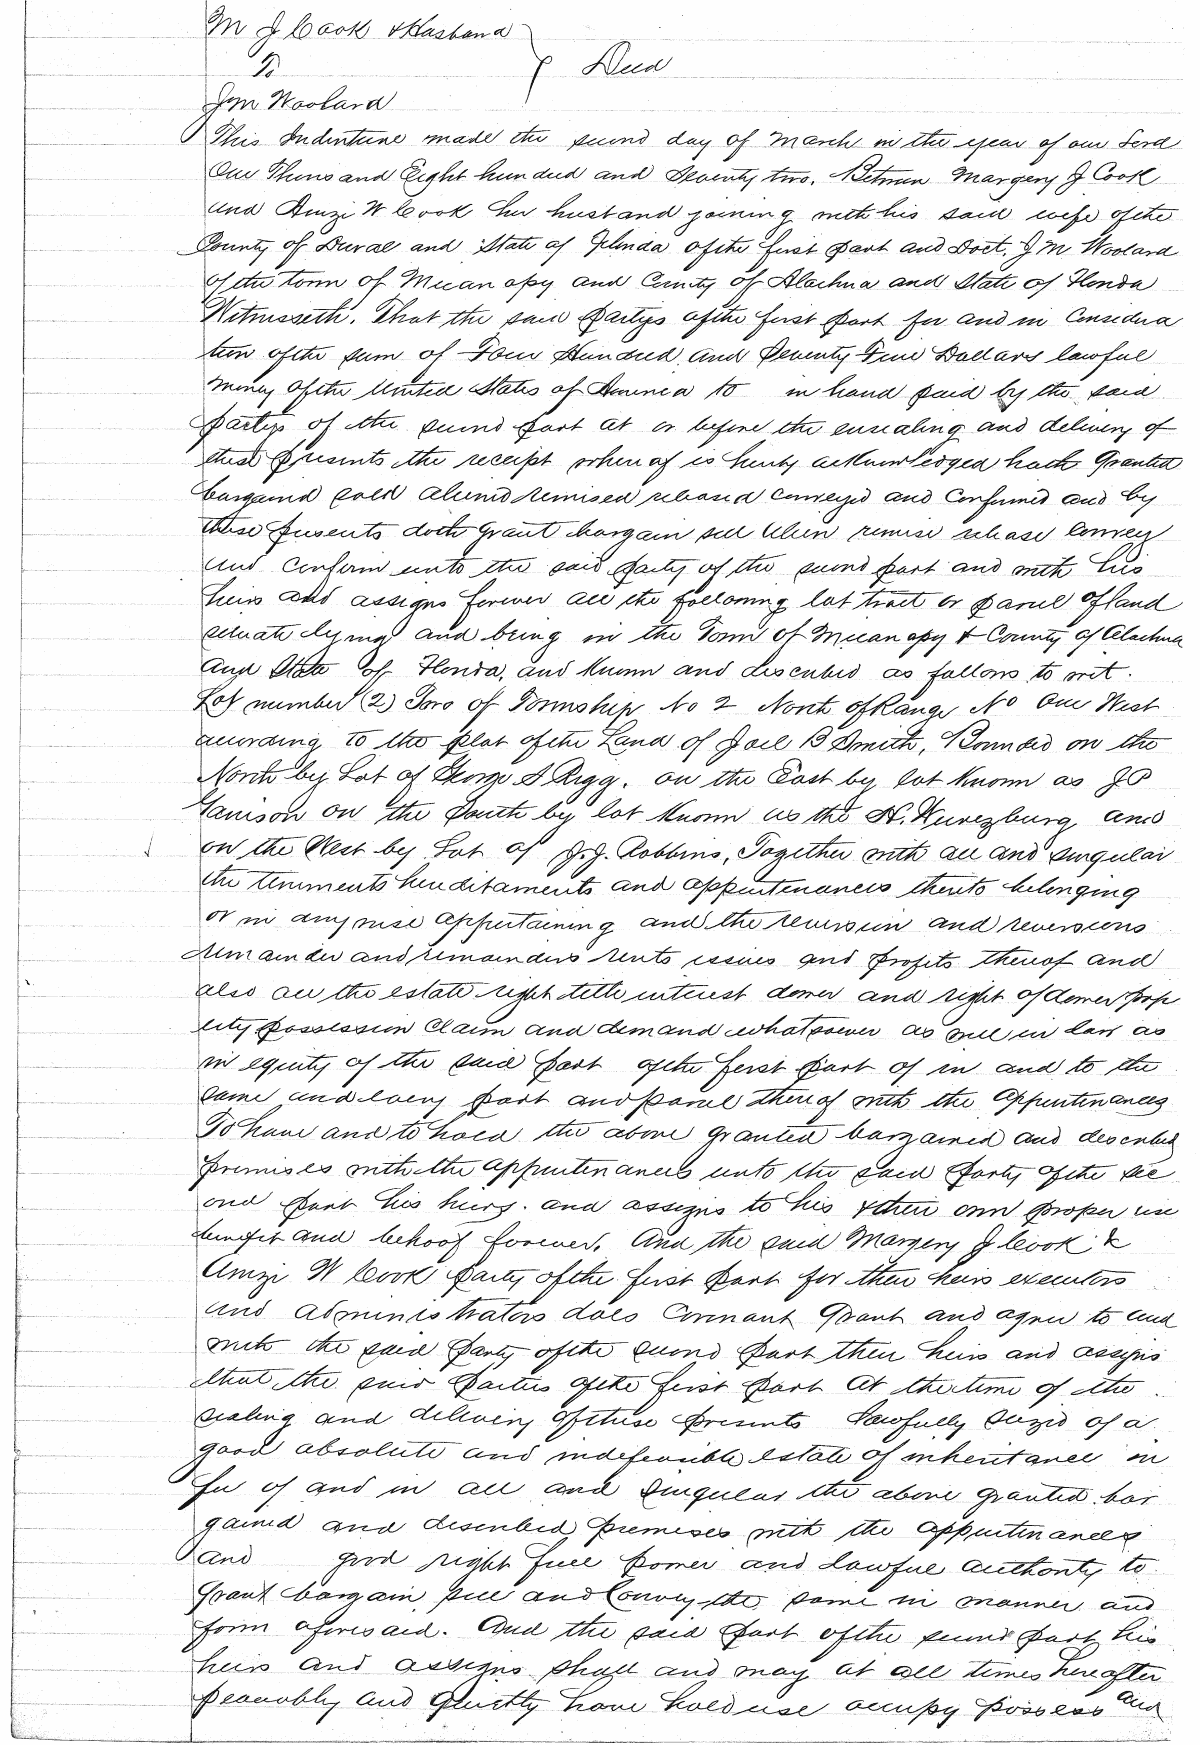 M J Cook & Husband
To } Deed
J M Woolard
This Indenture made the second day of March in the year of our Lord
One Thousand Eight hundred and Seventy two. Between Margery J Cook
and Amzi W Cook her husband joining with his said wife of the
County of Duval and State of Florida of the first part and Doct. J M Woolard
of the town of Micanopy and County of Alachua and State of Florida
Witnesseth. That the said partys of the first part for and in Considera
tion of the sum of Four Hundred and Seventy Five Dollars lawful
money of the United States of America to in hand paid by the said
partys of the second part at or before the ensealing and delivery of
these presents the receipt whereof is hereby acknowledged hath Granted
bargained sold aliened remised released conveyed and confirmed and by
these presents doth grant bargain sell alien remise release convey
and confirm unto the said party of the second part and with his
heirs and assigns forever all the following lot tract or parcel of land
situate lying and being in the Town of Micanopy & County of Alachua
and State of Florida, and known and described as follows to wit.
Lot number (2) Two of Township No 2 North of Range No One West
according to the plat of the Land of Joel B Smith, Bounded on the
North by Lot of George S Rigg. on the East by lot known as J P
Garrison on the South by lot known as the H. Wurezburg and
on the West by Lot of J. J. Robbins, Together with all and singular
the tenements hereditaments and appurtenances thereto belonging
or in anywise appertaining and the reversion and reversions
remainder and remainders rents issues and profits thereof and
also all the estate right title interest dower and right of dower prop
erty possession claim and demand whatsoever as well in law as
in equity of the said part of the first part of in and to the
same and every part and parcel thereof with the appurtenances
To have and to hold the above granted bargained and described
premises with the appurtenances unto the said party of the sec
ond part his heirs. and assigns to his & their own proper use
benefit and behoof forever. And the said Margery J Cook &
Amzi W Cook party of the first part for their heirs executors
and administrators does covenant Grant and agree to and
with the said party of the second part their heirs and assigns
that the said parties of the first part at the time of the
sealing and delivery of these presents lawfully seized of a
good absolute and indefeasible estate of inheritance in
fee of and in all and singular the above granted bar
gained and described premises with the appurtenances
and good right full power and lawful authority to
grant bargain sell and convey the same in manner and
form aforesaid. And the said part of the second part his
heirs and assigns shall and may at all times hereafter
peaceably and quietly have hold use occupy possess and